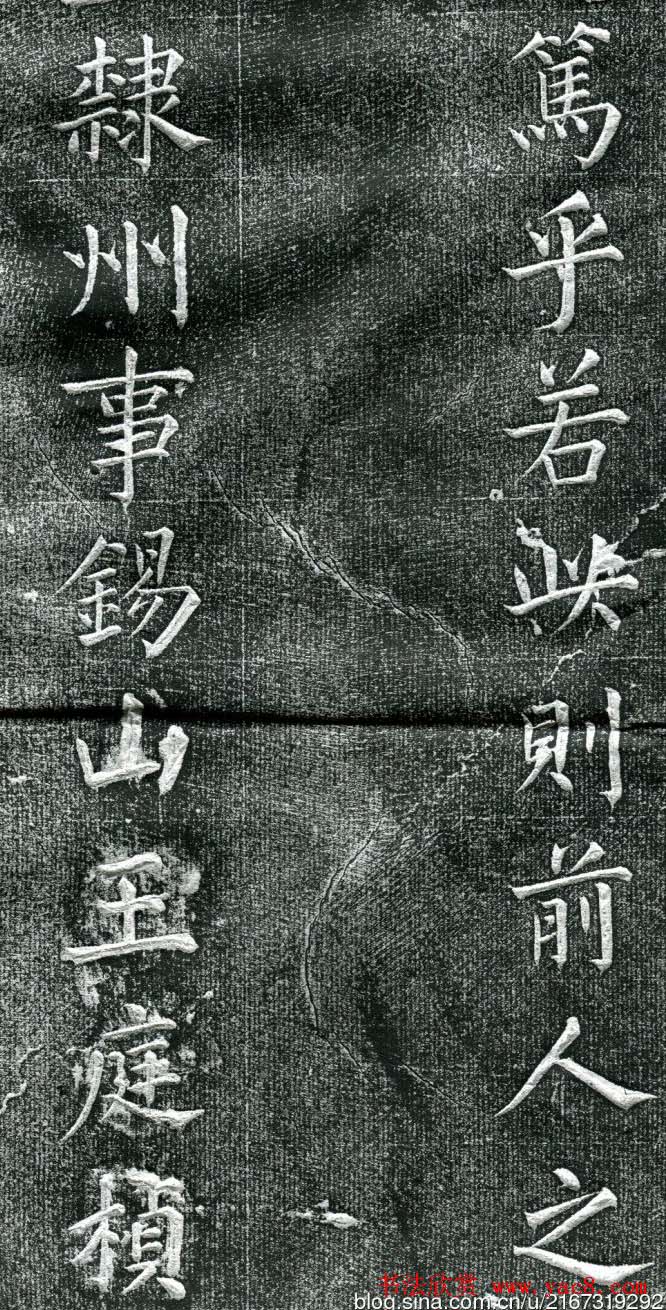 篤乎若此則前人之
隸州事錫山王庭楨
书法欣赏 www.yac8.com
blog.sina.com.cn/u/2167319292